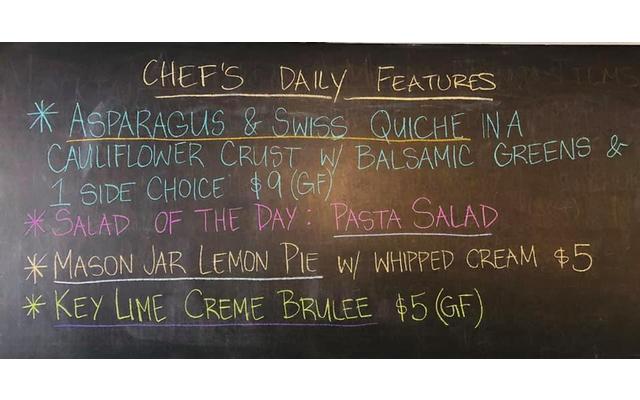 CHEF'S DAILY FEATURES
* ASPARAGUS & SWISS QUICHE IN A
CAULIFLOWER CRUST W/ BALSAMIC GREENS &
1 SIDE CHOICE $9 (GF)
* SALAD OF THE DAY: PASTA SALAD
* MASON JAR LEMON PIE W/ WHIPPED CREAM $5
* KEY LIME CREME BRULEE $5 (GF)